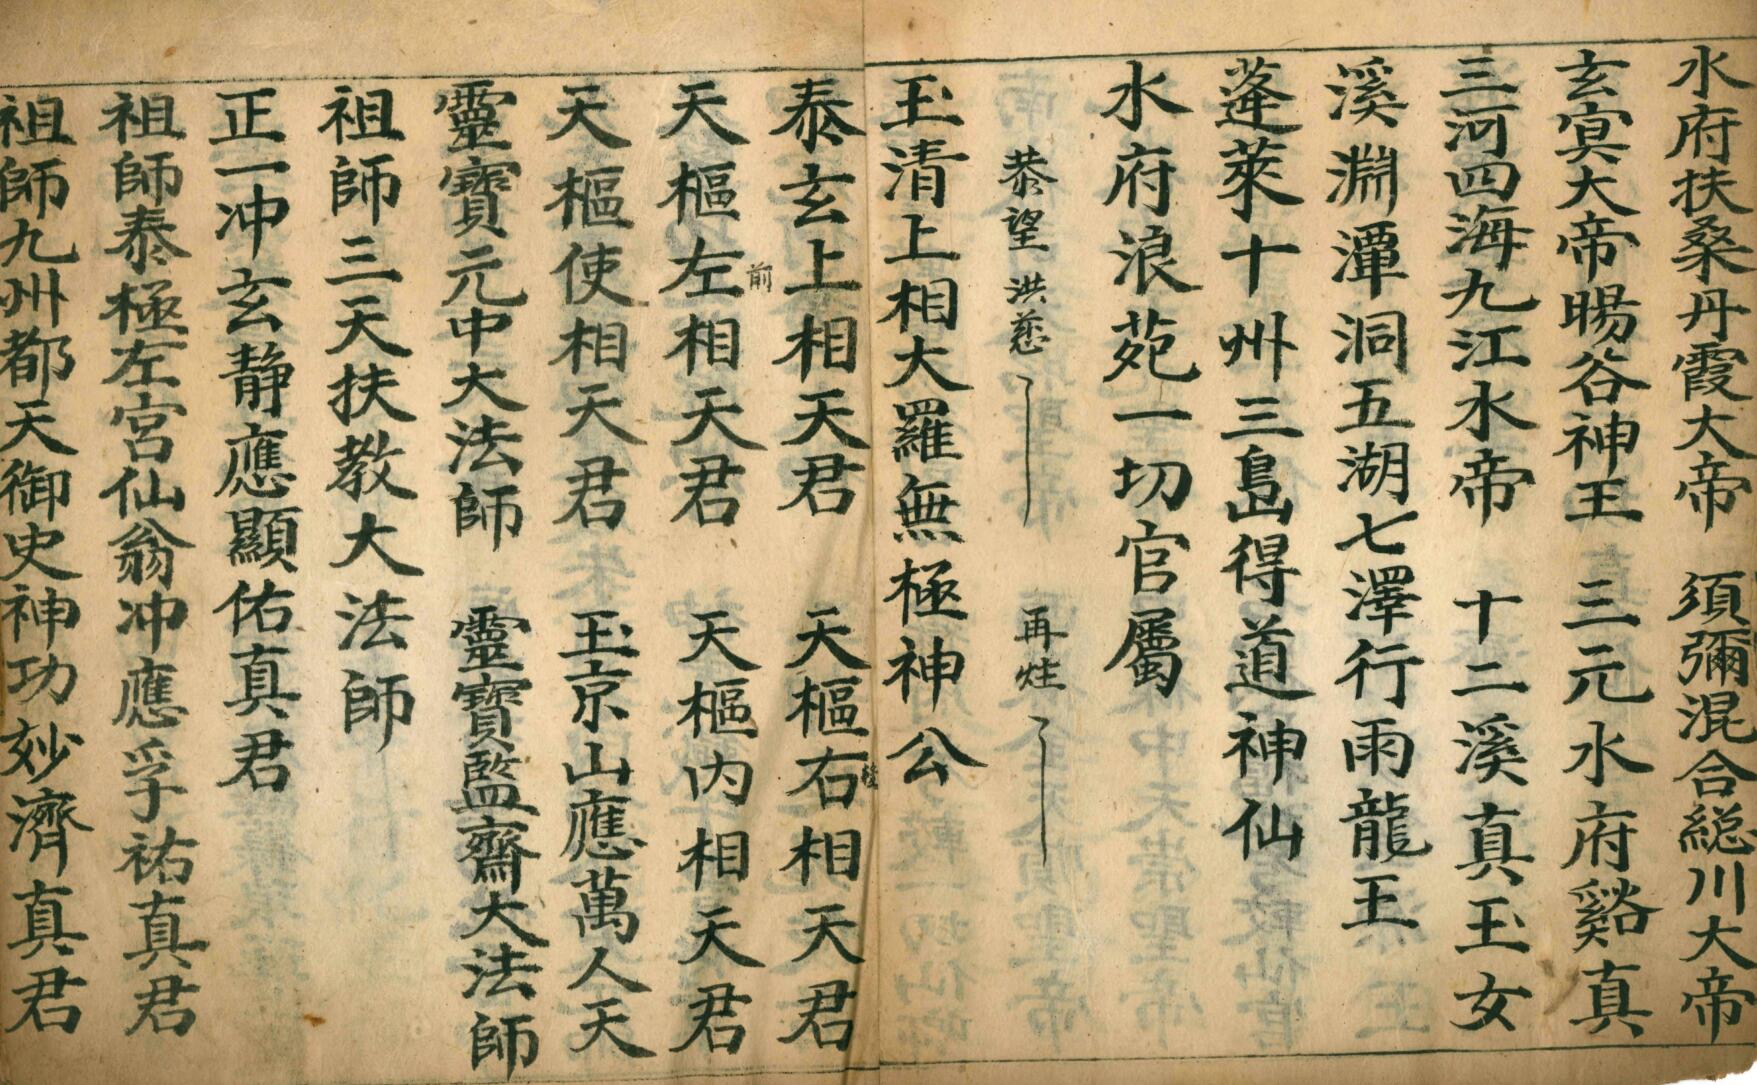 水府扶桑丹霞大帝 須彌混合総川大帝
玄寅大帝暘谷神王 三元水府谿真
三河四海九江水帝 十二溪真玉女
溪淵潭洞五湖七澤行雨龍王
蓬萊十州三島得道神仙
水府浪苑一切官屬
恭望洪慈 再炷
玉清上相大羅無極神公
泰玄上相天君 天樞右相天君
前
天樞左相天君 天樞内相天君
天樞使相天君 玉京山應萬人天
靈寶元中大法師 靈寶監齋大法師
祖師三天扶教大法師
正一冲玄静應顯佑真君
祖師泰極左宮仙翁冲應孚祐真君
祖師九州都天御史神功妙濟真君